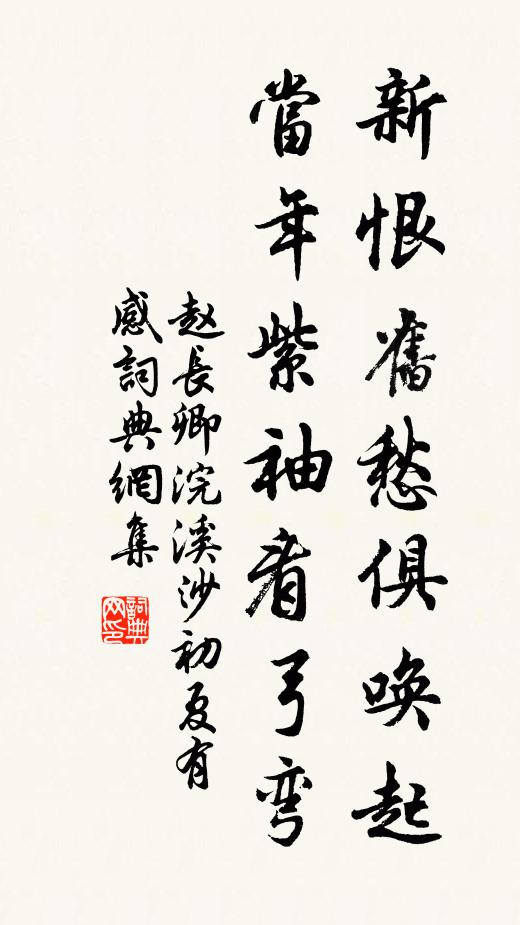 新恨舊愁俱喚起
當年紫袖看弓彎
赵長卿浣溪沙初夏有
感詞典網集
詞典
网印